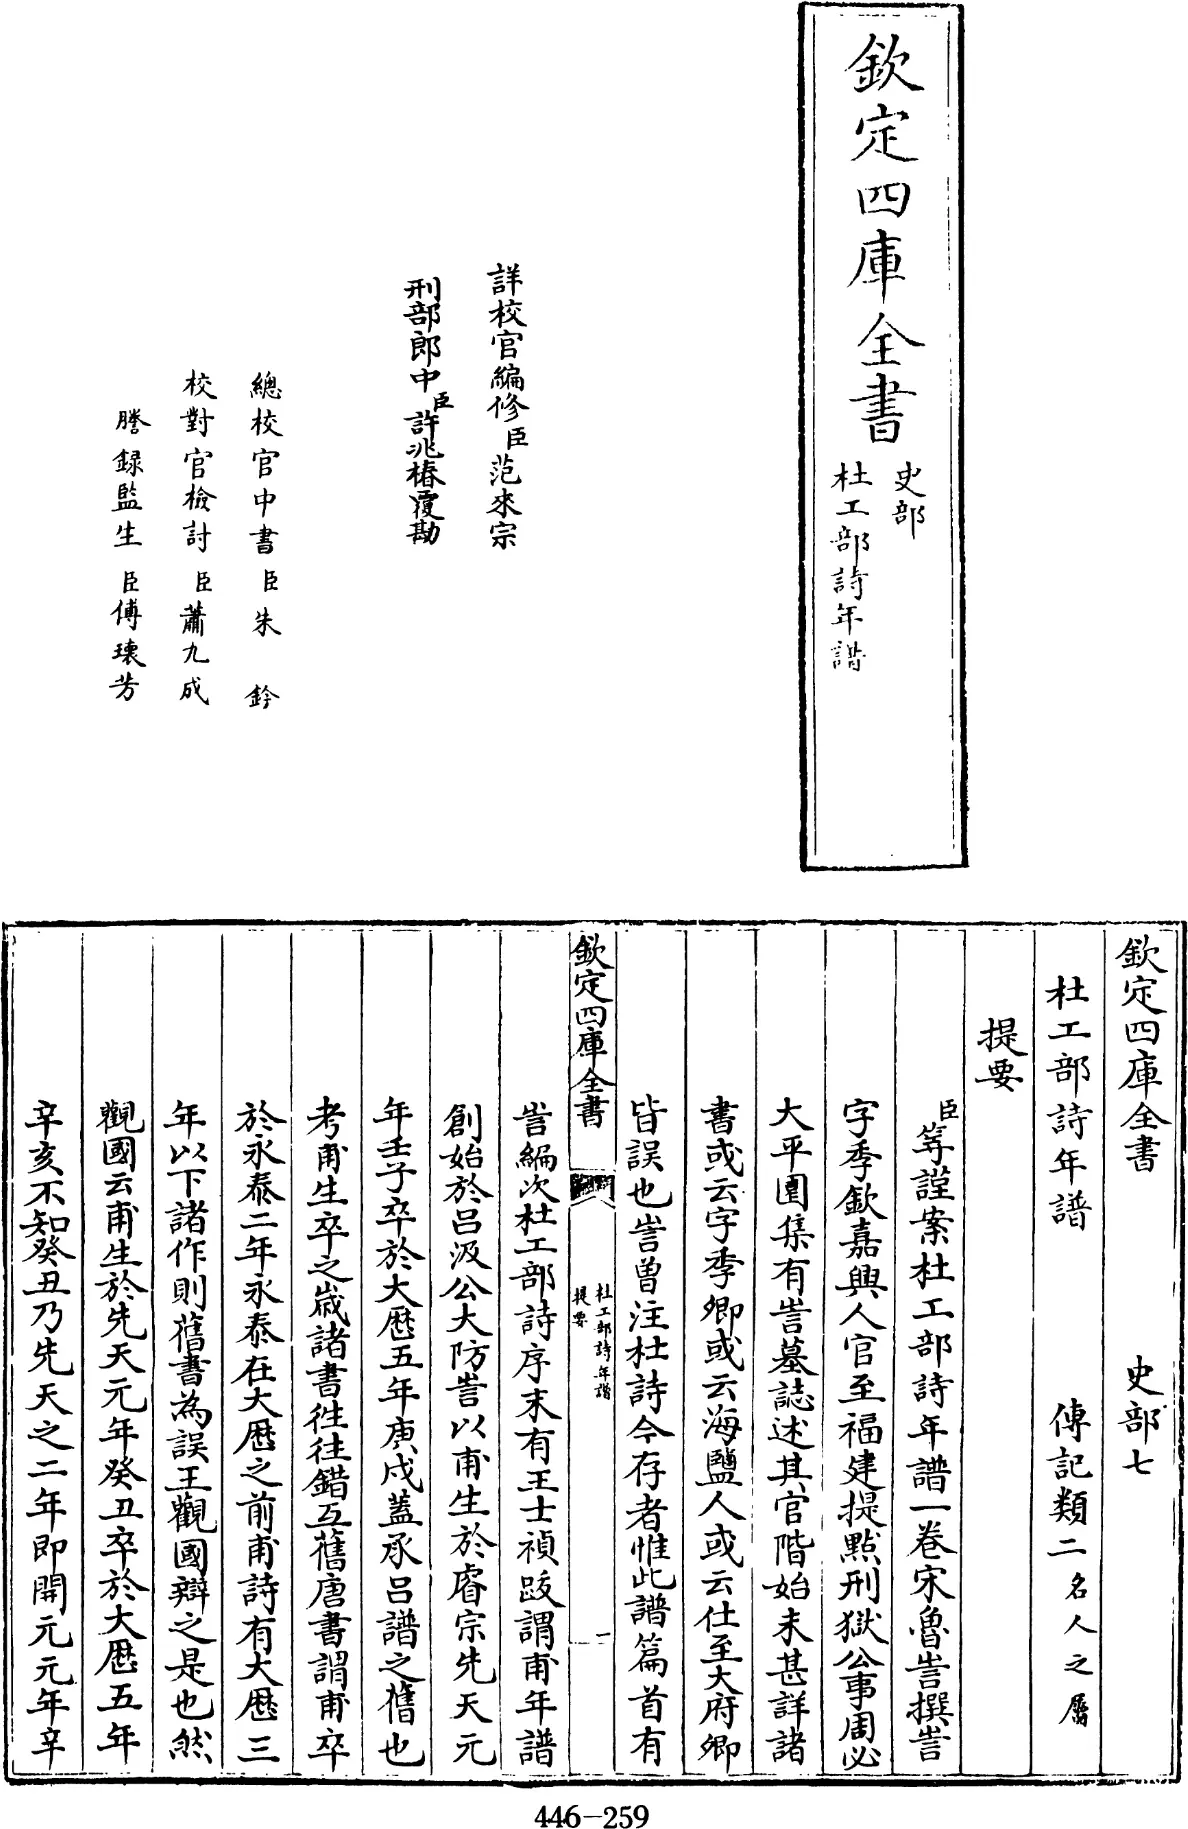 欽定四庫全書
史部
杜工部詩年譜
詳校官編修臣范來宗
刑部郎中臣許兆椿覆勘
總校官中書臣朱鈐
校對官檢討臣蕭九成
謄録監生臣傅瓌芳
欽定四庫全書 史部七
杜工部詩年譜 傳記類二名人之屬
提要
臣等謹案杜工部詩年譜一卷宋魯訔撰訔
字季欽嘉興人官至福建提點刑獄公事周必
大平園集有訔墓誌述其官階始末甚詳諸
書或云字季卿或云海鹽人或云仕至大府卿
皆誤也訔曽注杜詩今存者惟此譜篇首有
欽定四庫全書
杜工部詩年譜
提要
一
訔編次杜工部詩序末有王士禎跋謂甫年譜
創始於吕汲公大防訔以甫生於睿宗先天元
年壬子卒於大厯五年庚戌蓋承吕譜之舊也
考甫生卒之歳諸書徃徃錯互舊唐書謂甫卒
於永泰二年永泰在大厯之前甫詩有大厯三
年以下諸作則舊書為誤王觀國辯之是也然
觀國云甫生於先天元年癸丑卒於大厯五年
辛亥不知癸丑乃先天之二年即開元元年辛
446-259